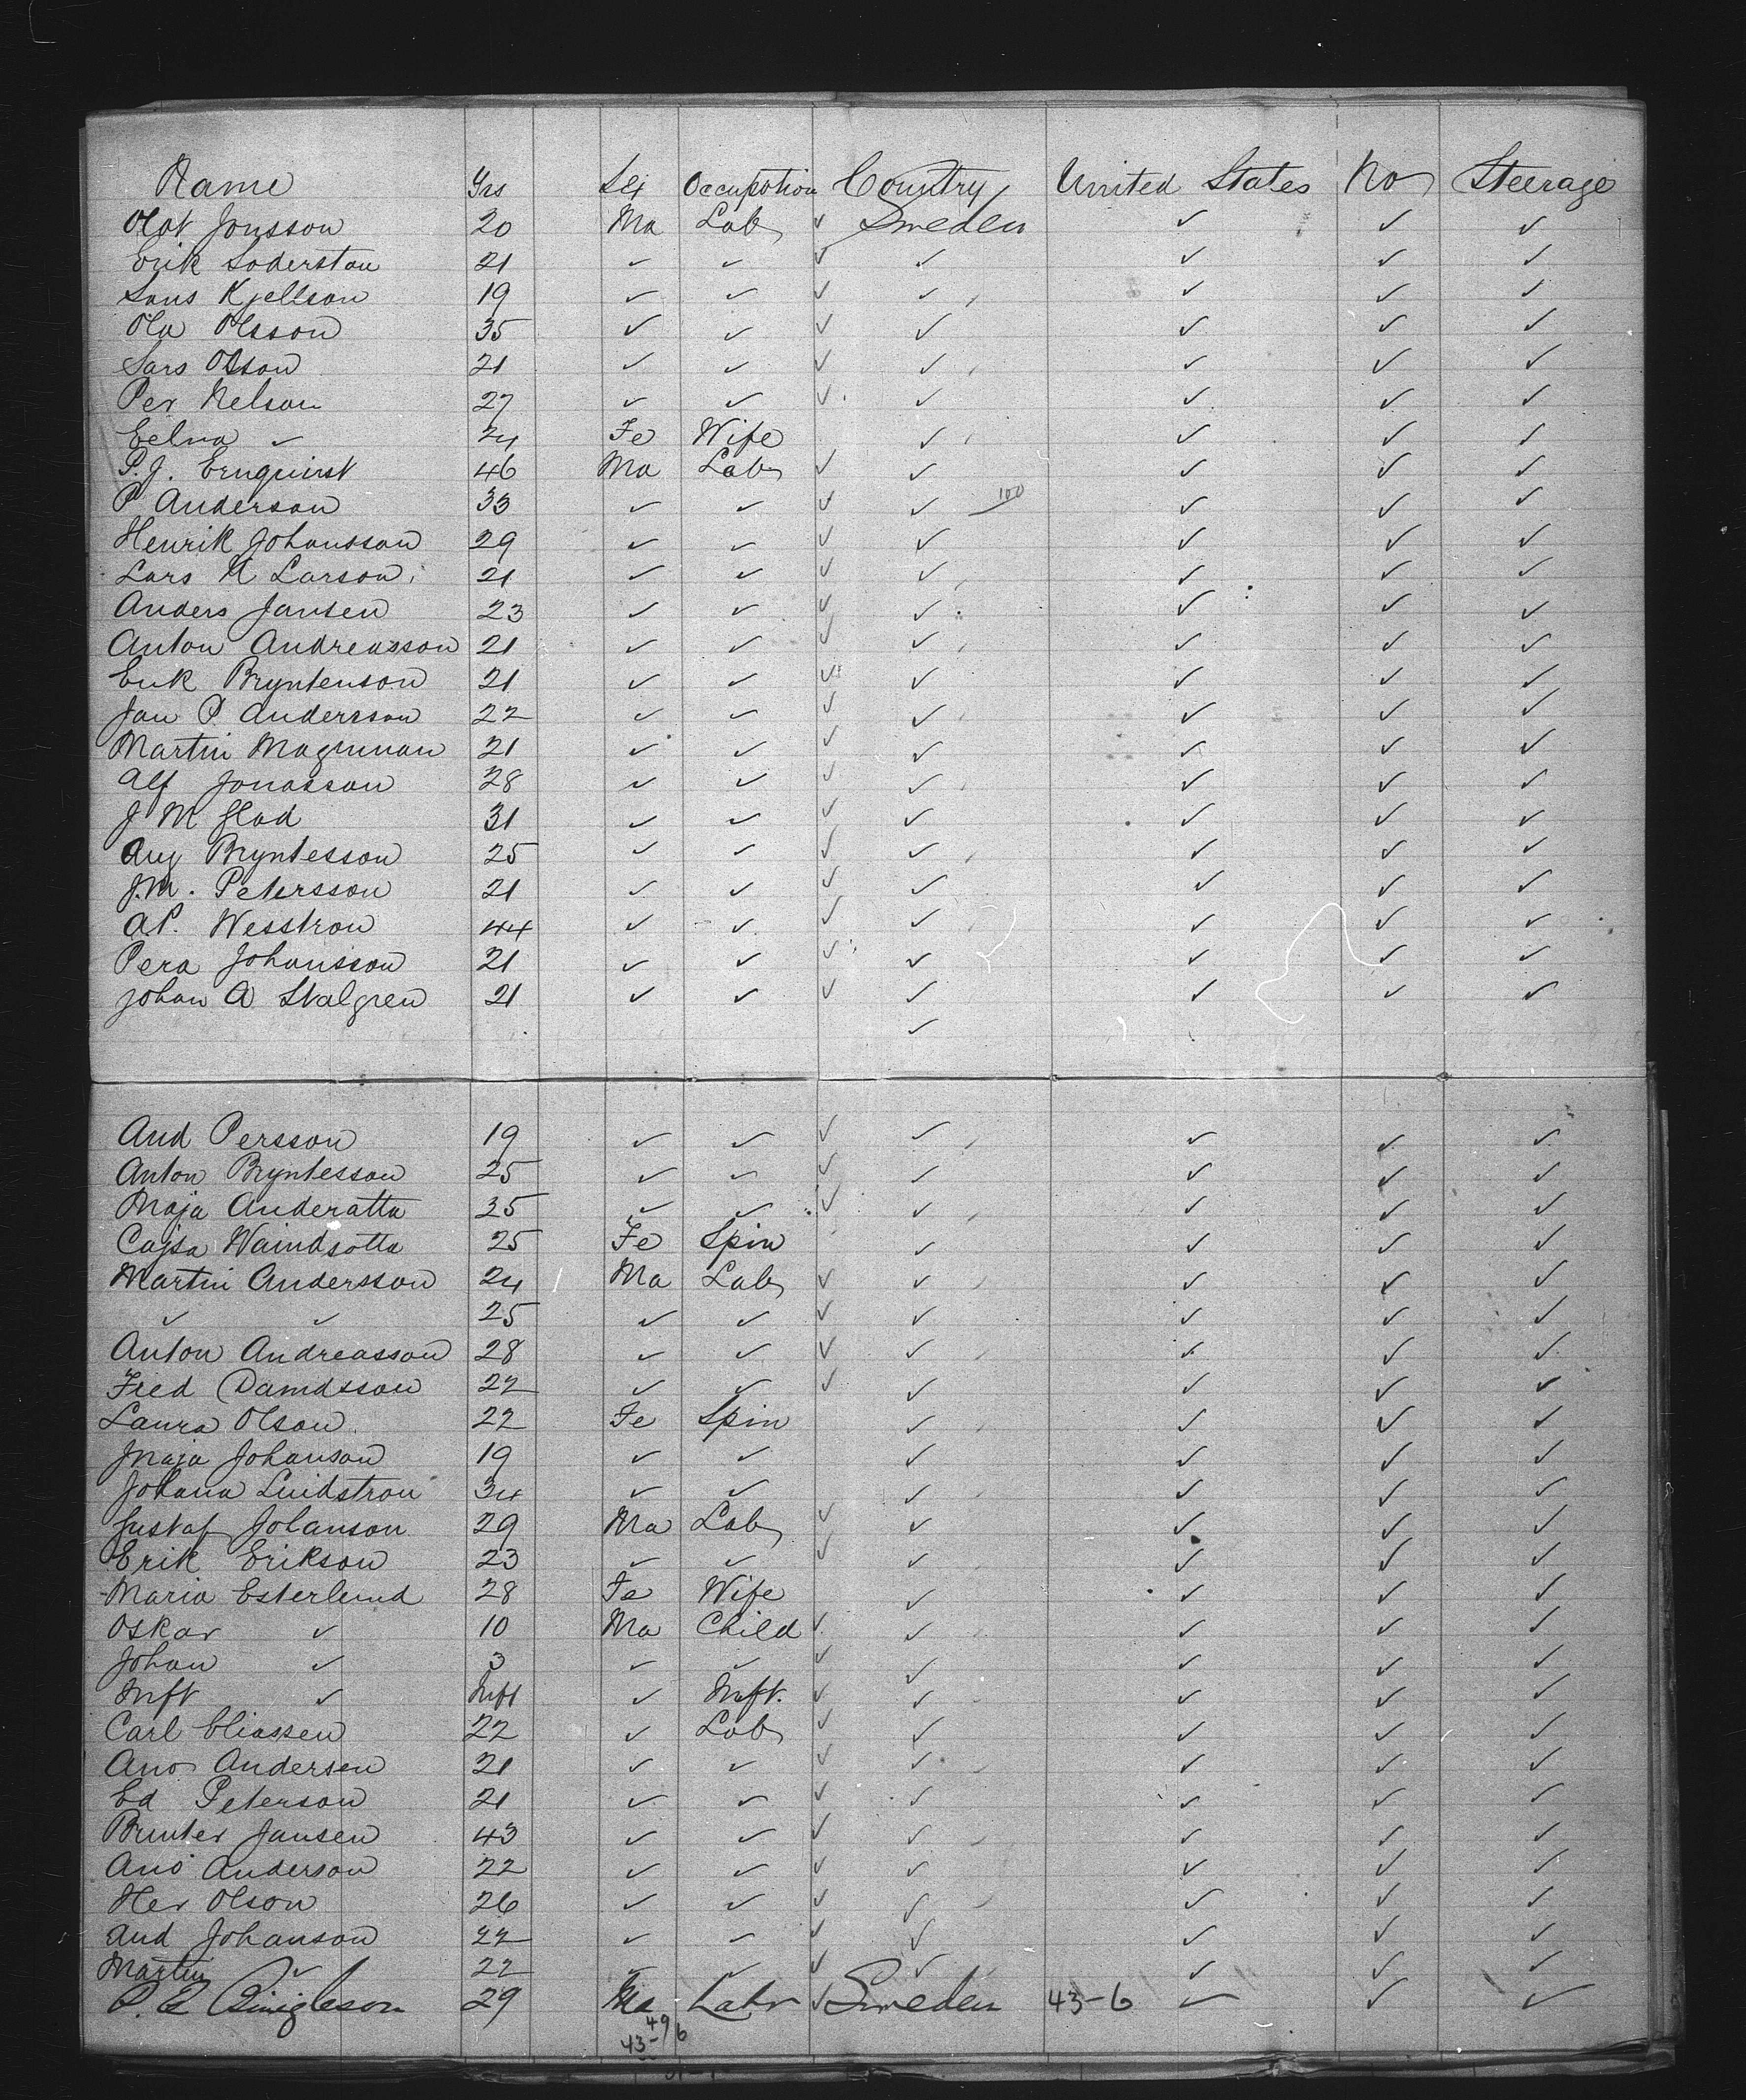 Name Yrs Sex Occupation Country United States No Steerage
Olof Jonsson 20 Ma Lab ✓ Sweden ✓ ✓ ✓
Erik Soderston 21 ✓ ✓ ✓ ✓ ✓ ✓ ✓
Lans Kjellson 19 ✓ ✓ ✓ ✓ ✓ ✓ ✓
Ola Olsson 35 ✓ ✓ ✓ ✓ ✓ ✓ ✓
Lars Olson 21 ✓ ✓ ✓ ✓ ✓ ✓ ✓
Per Nelson 27 ✓ ✓ ✓ ✓ ✓ ✓ ✓
Eelna ✓ 24 Fe Wife ✓ ✓ ✓ ✓
P.J. Ernquirst 46 Ma Lab ✓ ✓ ✓ ✓ ✓
P Anderson 33 ✓ ✓ ✓ ✓ 100 ✓ ✓ ✓
Henrik Johansson 29 ✓ ✓ ✓ ✓ ✓ ✓ ✓
Lars M Larson 21 ✓ ✓ ✓ ✓ ✓ ✓ ✓
Anders Jansen 23 ✓ ✓ ✓ ✓ ✓ ✓ ✓
Anton Andreasson 21 ✓ ✓ ✓ ✓ ✓ ✓ ✓
Erik Bryntenson 21 ✓ ✓ ✓ ✓ ✓ ✓ ✓
Jan P Andersson 22 ✓ ✓ ✓ ✓ ✓ ✓ ✓
Martin Magnuuan 21 ✓ ✓ ✓ ✓ ✓ ✓ ✓
Alf Jonasson 28 ✓ ✓ ✓ ✓ ✓ ✓ ✓
J M Glad 31 ✓ ✓ ✓ ✓ ✓ ✓ ✓
Aug Bryntesson 25 ✓ ✓ ✓ ✓ ✓ ✓ ✓
J.M. Petersson 21 ✓ ✓ ✓ ✓ ✓ ✓ ✓
A.P. Wesstron 44 ✓ ✓ ✓ ✓ ✓ ✓ ✓
Pera Johansson 21 ✓ ✓ ✓ ✓ ✓ ✓ ✓
Johan A Stalgren 21 ✓ ✓ ✓ ✓ ✓ ✓ ✓
✓
And Persson 19 ✓ ✓ ✓ ✓ ✓ ✓ ✓
Anton Bryntesson 25 ✓ ✓ ✓ ✓ ✓ ✓ ✓
Maja Anderatta 35 ✓ ✓ ✓ ✓ ✓ ✓ ✓
Cajsa Waindsotta 25 Fe Spin ✓ ✓ ✓ ✓
Martin Andersson 24 Ma Lab ✓ ✓ ✓ ✓ ✓
✓ ✓ 25 ✓ ✓ ✓ ✓ ✓ ✓ ✓
Anton Andreasson 28 ✓ ✓ ✓ ✓ ✓ ✓ ✓
Fred Damdsson 22 ✓ ✓ ✓ ✓ ✓ ✓ ✓
Laura Olson 22 Fe Spin ✓ ✓ ✓ ✓
Maja Johanson 19 ✓ ✓ ✓ ✓ ✓ ✓
Johana Lindstron 34 ✓ ✓ ✓ ✓ ✓ ✓
Gustaf Johanson 29 Ma Lab ✓ ✓ ✓ ✓ ✓
Erik Erikson 23 ✓ ✓ ✓ ✓ ✓ ✓ ✓
Maria Esterlund 28 Fe Wife ✓ ✓ ✓ ✓
Oskar ✓ 10 Ma Child ✓ ✓ ✓ ✓ ✓
Johan ✓ 3 ✓ ✓ ✓ ✓ ✓ ✓ ✓
Inft ✓ Inft ✓ Inft. ✓ ✓ ✓ ✓ ✓
Carl Eliassen 22 ✓ Lab ✓ ✓ ✓ ✓ ✓
Ano Andersen 21 ✓ ✓ ✓ ✓ ✓ ✓ ✓
Ed Peterson 21 ✓ ✓ ✓ ✓ ✓ ✓ ✓
Brunter Jansen 43 ✓ ✓ ✓ ✓ ✓ ✓ ✓
Ano Anderson 22 ✓ ✓ ✓ ✓ ✓ ✓ ✓
Her Olson 26 ✓ ✓ ✓ ✓ ✓ ✓ ✓
And Johanson 22 ✓ ✓ ✓ ✓ ✓ ✓ ✓
Martin ✓ 22 ✓ ✓ ✓ ✓ ✓ ✓ ✓
P. E Bingleson 29 Ma Labr ✓ Sweden 43-6 ✓ ✓ ✓
49
43-6